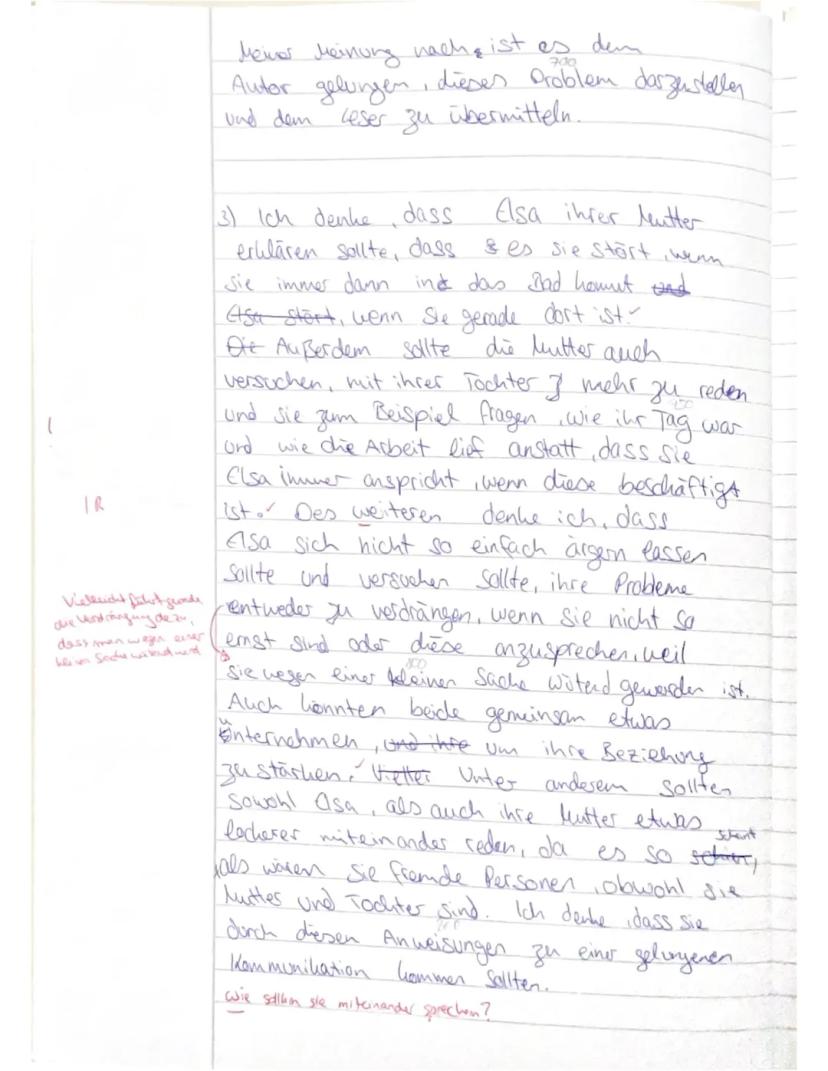 Meiner Meinung nach ist es dem
700
Autor gelungen, dieses Problem darzustellen
und dem Leser zu übermitteln.
3) Ich denke, dass Elsa ihrer Mutter
erklären sollte, dass es sie stört, wenn
sie immer dann in das Bad kommt und
Elsa stört, wenn sie gerade dort ist.
Die Außerdem sollte die Mutter auch
versuchen, mit ihrer Tochter mehr zu reden
und sie zum Beispiel fragen, wie ihr Tag war
und wie die Arbeit lief anstatt, dass sie
Elsa immer anspricht, wenn diese beschäftigt
1R
ist. Des weiteren denke ich, dass
Elsa sich nicht so einfach ärgern lassen
sollte und versuchen sollte, ihre Probleme
Vielleicht führt gerade
die Verdrängung dazu,
dass man wegen einer
kleinen Sache wütend wird
entweder zu verdrängen, wenn sie nicht so
ernst sind oder diese anzusprechen, weil
800
sie wegen einer kleinen Sache wütend geworden ist.
Auch könnten beide gemeinsam etwas
unternehmen, und ihre um ihre Beziehung
zu stärken. Unter anderem sollten
sowohl Elsa, als auch ihre Mutter etwas
lockerer miteinander reden, da es so scheint,
als wären sie fremde Personen, obwohl sie
Mutter und Tochter sind. Ich denke, dass sie
durch diesen Anweisungen zu einer gelungenen
Kommunikation kommen sollten.
Wie sollten sie miteinander sprechen?